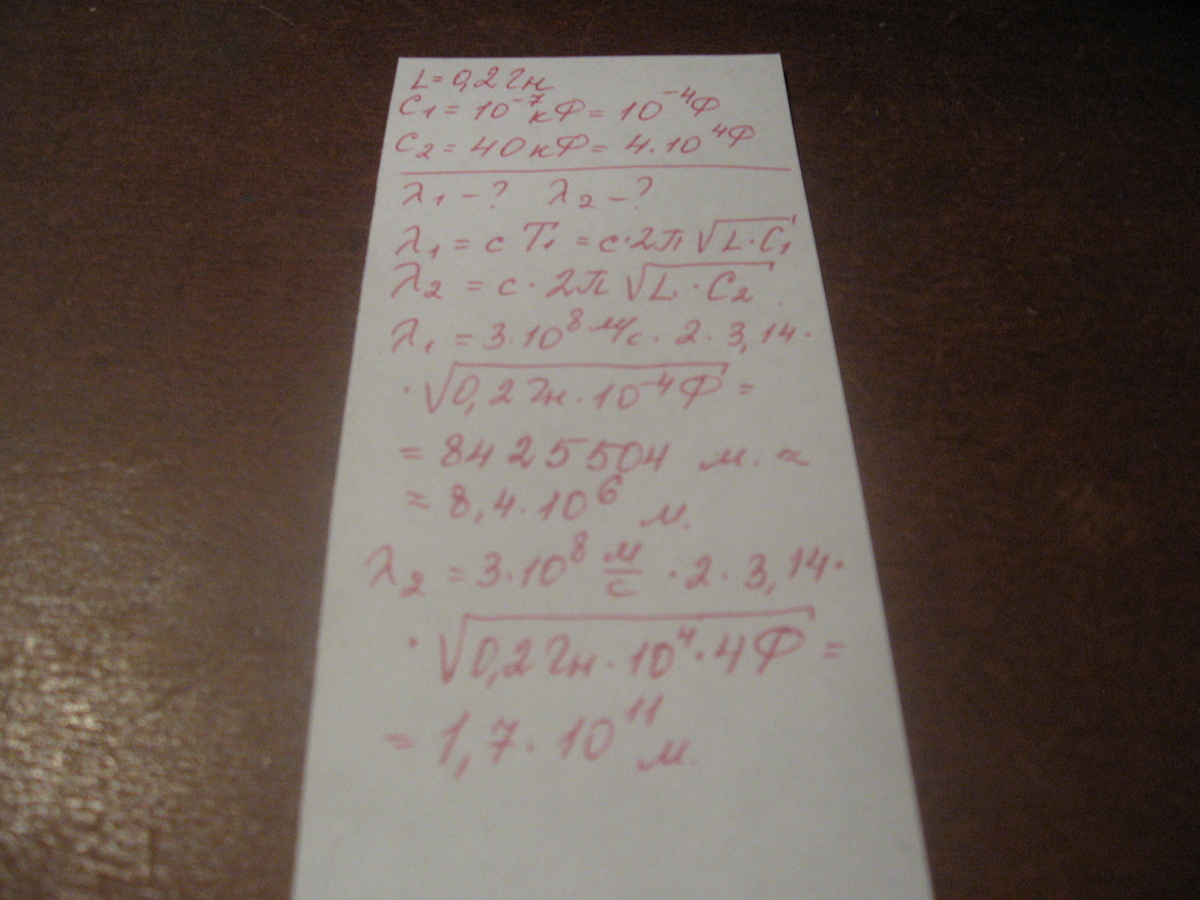 L = 0,2 Гн
C₁ = 10⁻⁷ кФ = 10⁻⁴ Ф
C₂ = 40 кФ = 4·10⁴ Ф
λ₁ - ? λ₂ - ?
λ₁ = c T₁ = c·2π √(L·C₁)
λ₂ = c·2π √(L·C₂)
λ₁ = 3·10⁸ м/с · 2 · 3,14 ·
· √(0,2 Гн · 10⁻⁴ Ф) =
= 8425504 м. ≈
≈ 8,4·10⁶ м.
λ₂ = 3·10⁸ м/с · 2 · 3,14 ·
· √(0,2 Гн · 10⁴ · 4 Ф) =
= 1,7 · 10¹¹ м.